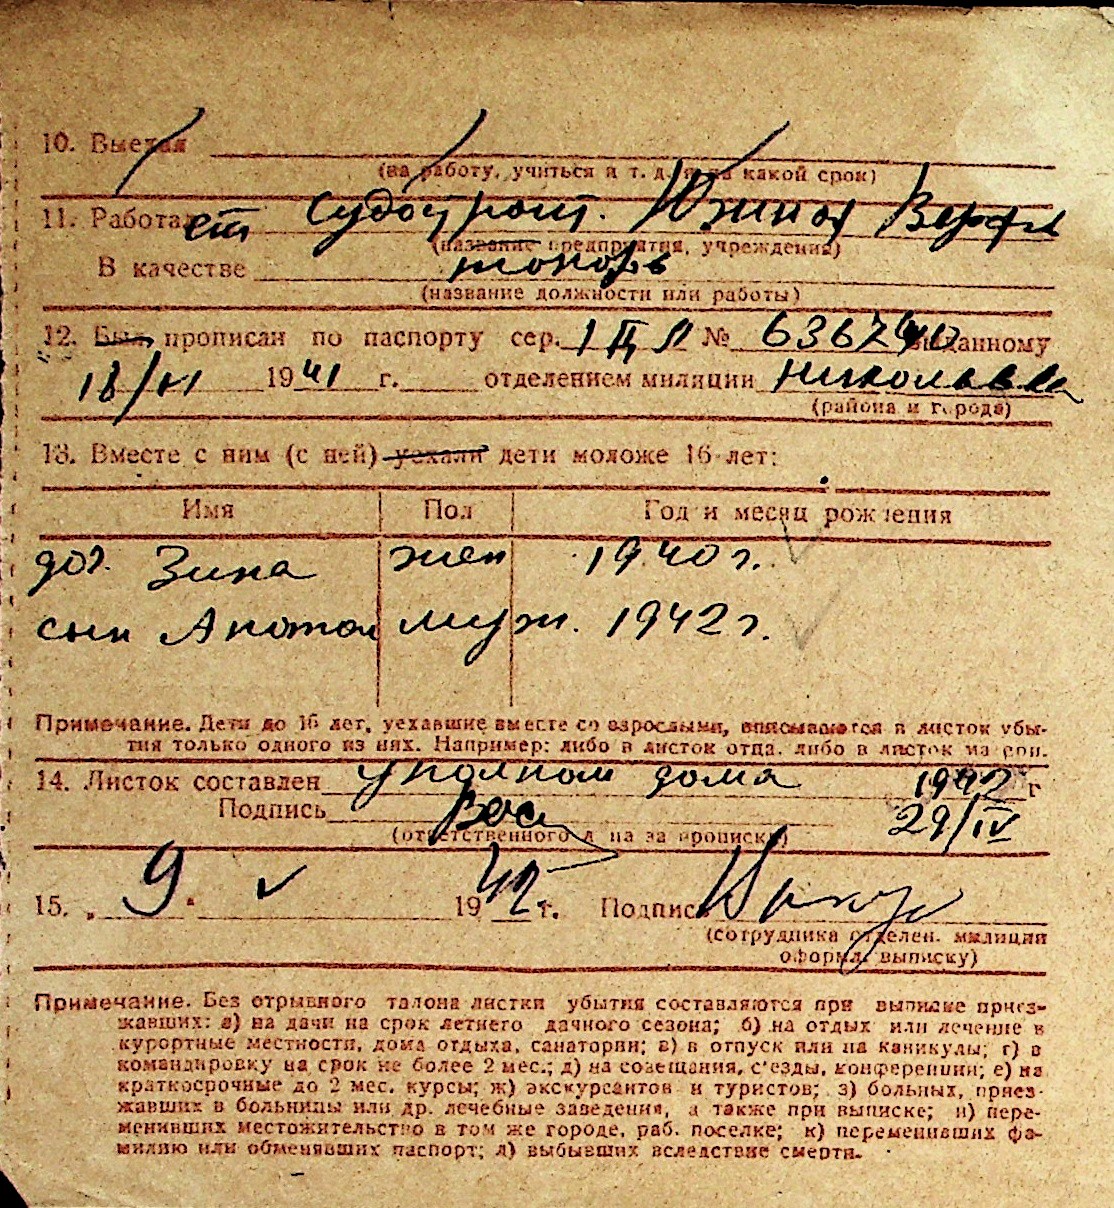 10. Выехал
(на работу, учиться и т. д. и на какой срок)
11. Работает судостроит. Южная Верфь
(название предприятия, учреждения)
В качестве токарь
(название должности или работы)
12. Был прописан по паспорту сер. № выданному
18/VI 1941 г. отделением милиции Николаева
(района и города)
13. Вместе с ним (с ней) уехали дети моложе 16 лет:
Имя Пол Год и месяц рождения
доч. Зина жен 1940 г.
сын Анатол муж. 1942 г.
Примечание. Дети до 16 лет, уехавшие вместе со взрослыми, вписываются в листок убы-
тия только одного из них. Например: либо в листок отца, либо в листок матери.
14. Листок составлен уполном дома 1942 г
Подпись 29/IV
(ответственного л на за прописку)
15. „ 9 " V 1942 г. Подпись
(сотрудника отделен. милиции
оформл. выписку)
Примечание. Без отрывного талона листки убытия составляются при выписке приез-
жавших: а) на дачи на срок летнего дачного сезона; б) на отдых или лечение в
курортные местности, дома отдыха, санатории; в) в отпуск или на каникулы; г) в
командировку на срок не более 2 мес.; д) на совещания, с'езды, конференции; е) на
краткосрочные до 2 мес. курсы; ж) экскурсантов и туристов; з) больных, приез-
жавших в больницы или др. лечебные заведения, а также при выписке; и) пере-
менивших местожительство в том же городе, раб. поселке; к) переменивших фа-
милию или обменявших паспорт; л) выбывших вследствие смерти.